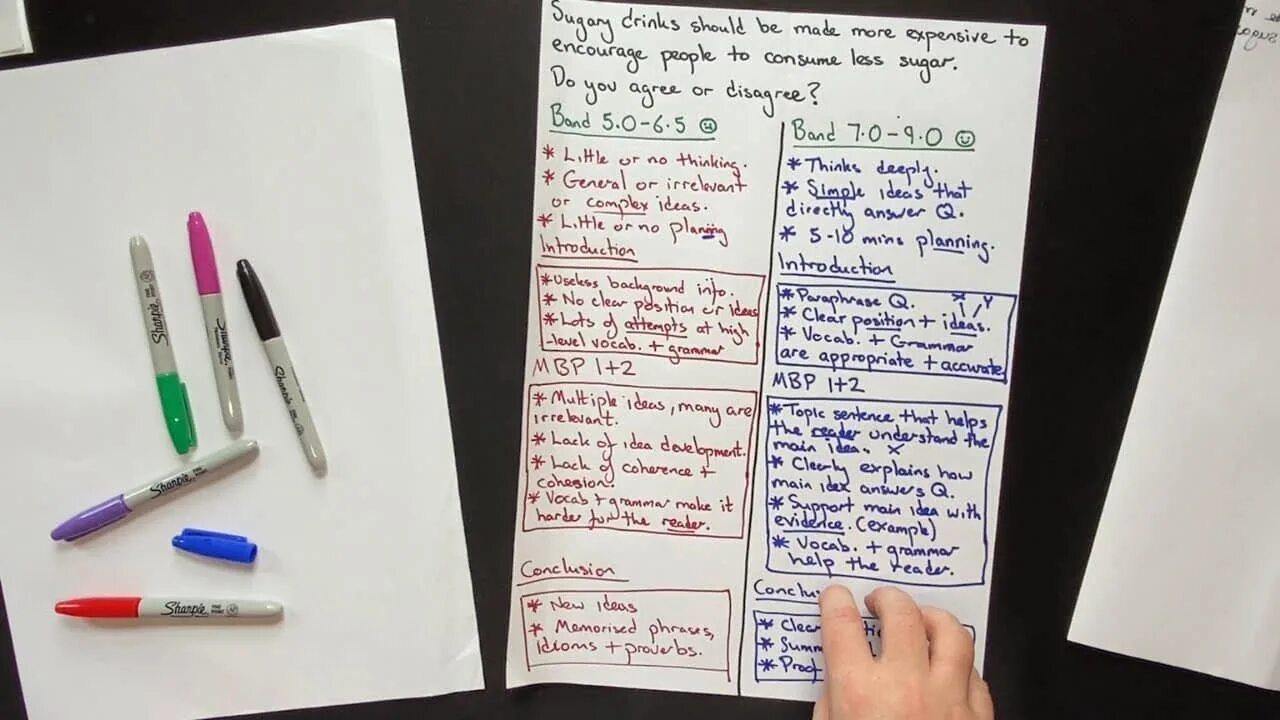 Sugary drinks should be made more expensive to
encourage people to consume less sugar.
Do you agree or disagree?
Band 5.0-6.5
* Little or no thinking.
* General or irrelevant
or complex ideas.
* Little or no planning
Introduction
*Useless background info.
* No clear position or ideas
*Lots of attempts at high
-level vocab. + grammar
MBP 1+2
* Multiple ideas, many are
irrelevant.
* Lack of idea development.
* Lack of coherence +
cohesion.
* Vocab + grammar make it
harder for the reader.
Conclusion
* New ideas
* Memorised phrases,
idioms + proverbs.
Band 7.0-9.0
* Thinks deeply.
* Simple ideas that
directly answer Q.
* 5-10 mins planning.
Introduction
* Paraphrase Q. X Y
* Clear position + ideas.
* Vocab. + Grammar
are appropriate + accurate
MBP 1+2
*Topic sentence that helps
the reader understand the
main idea. X
* Clearly explains how
main idea answers Q.
* Support main idea with
evidence. (example)
* Vocab. + grammar
help the reader.
Conclu
* Clea
* Summ
* Proof
Sharpie
Sharpie
Sharpie
Sharpie
Sharpie